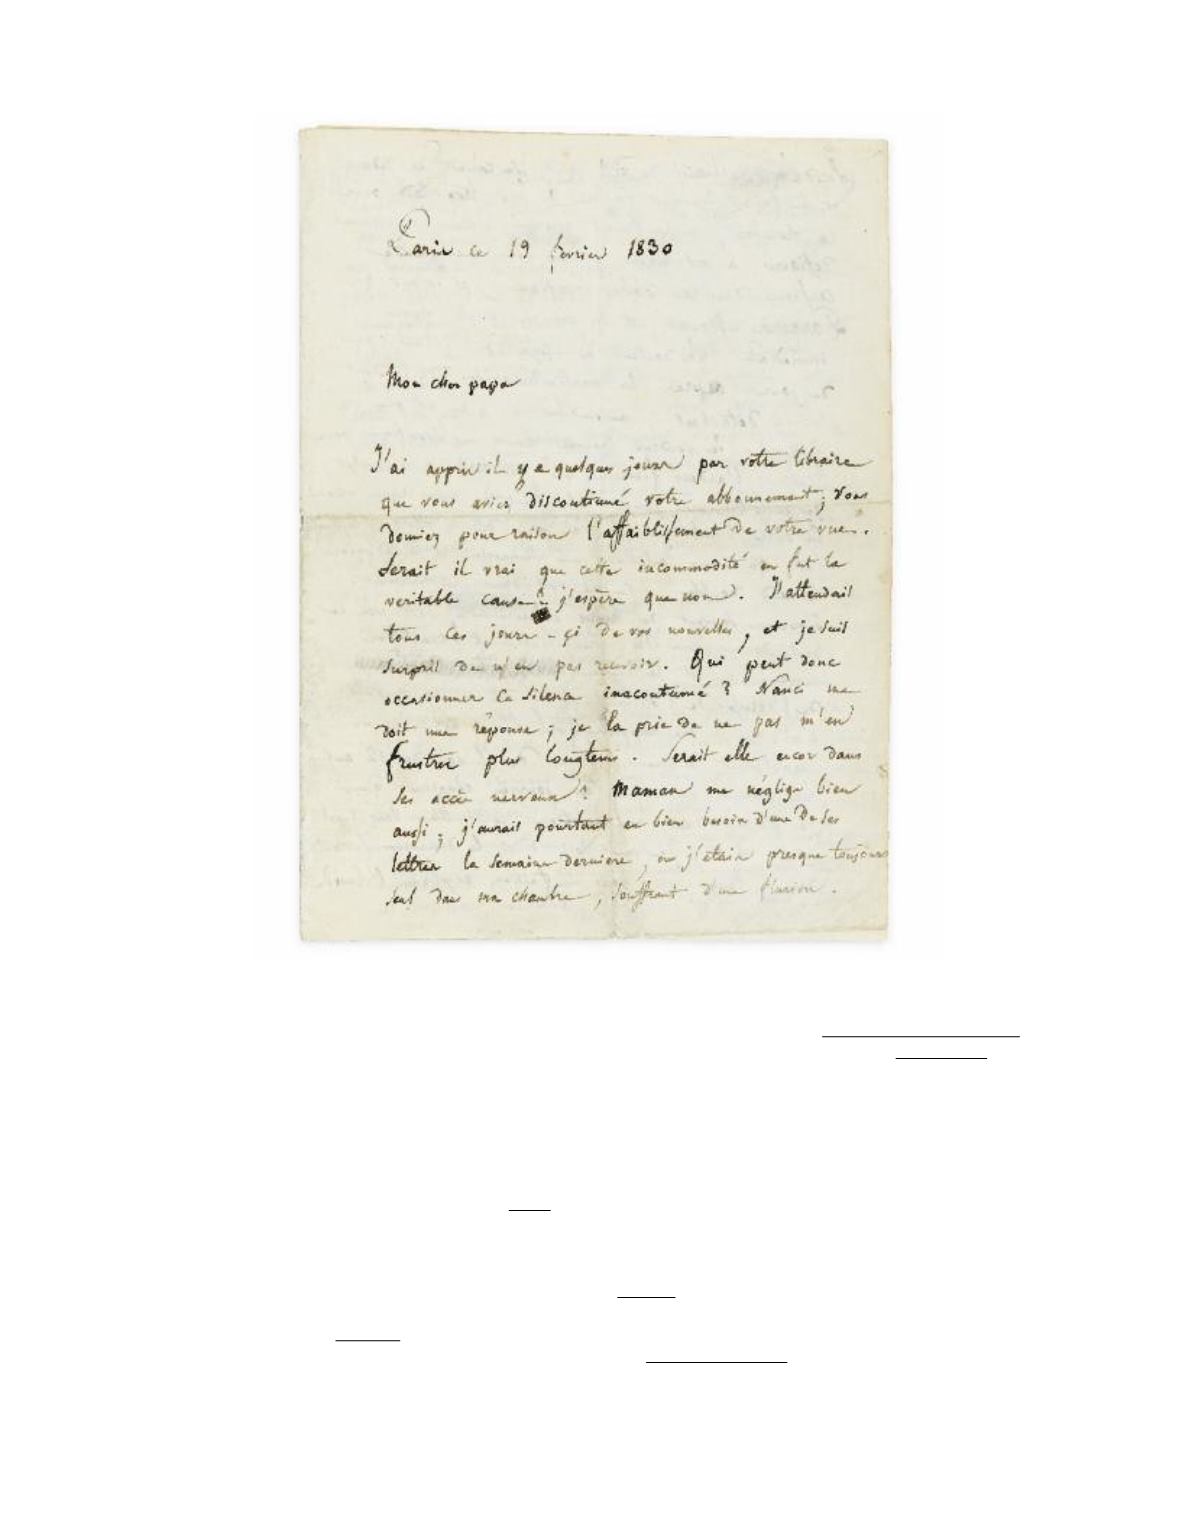 Paris ce 19 fevrier 1830
Mon cher papa
J'ai appris il y a quelques jours par votre libraire
que vous aviez discontinué votre abbonnement; vous
donniez pour raison l'affaiblissement de votre vue.
Serait il vrai que cette incommodité en fut la
veritable cause? j'espère que non. J'attendais
tous ces jours-çi de vos nouvelles, et je suis
surpris de n'en pas recevoir. Qui peut donc
occasionner ce silence inacoutumé? Nanci me
doit une réponse; je la prie de ne pas m'en
frustrer plus longtems. Serait elle encor dans
ses accès nerveux? Maman me néglige bien
aussi; j'aurais pourtant eu bien besoin d'une de ses
lettres la semaine derniere, ou j'etais presque toujours
seul dans ma chambre, souffrant d'une fluxion.